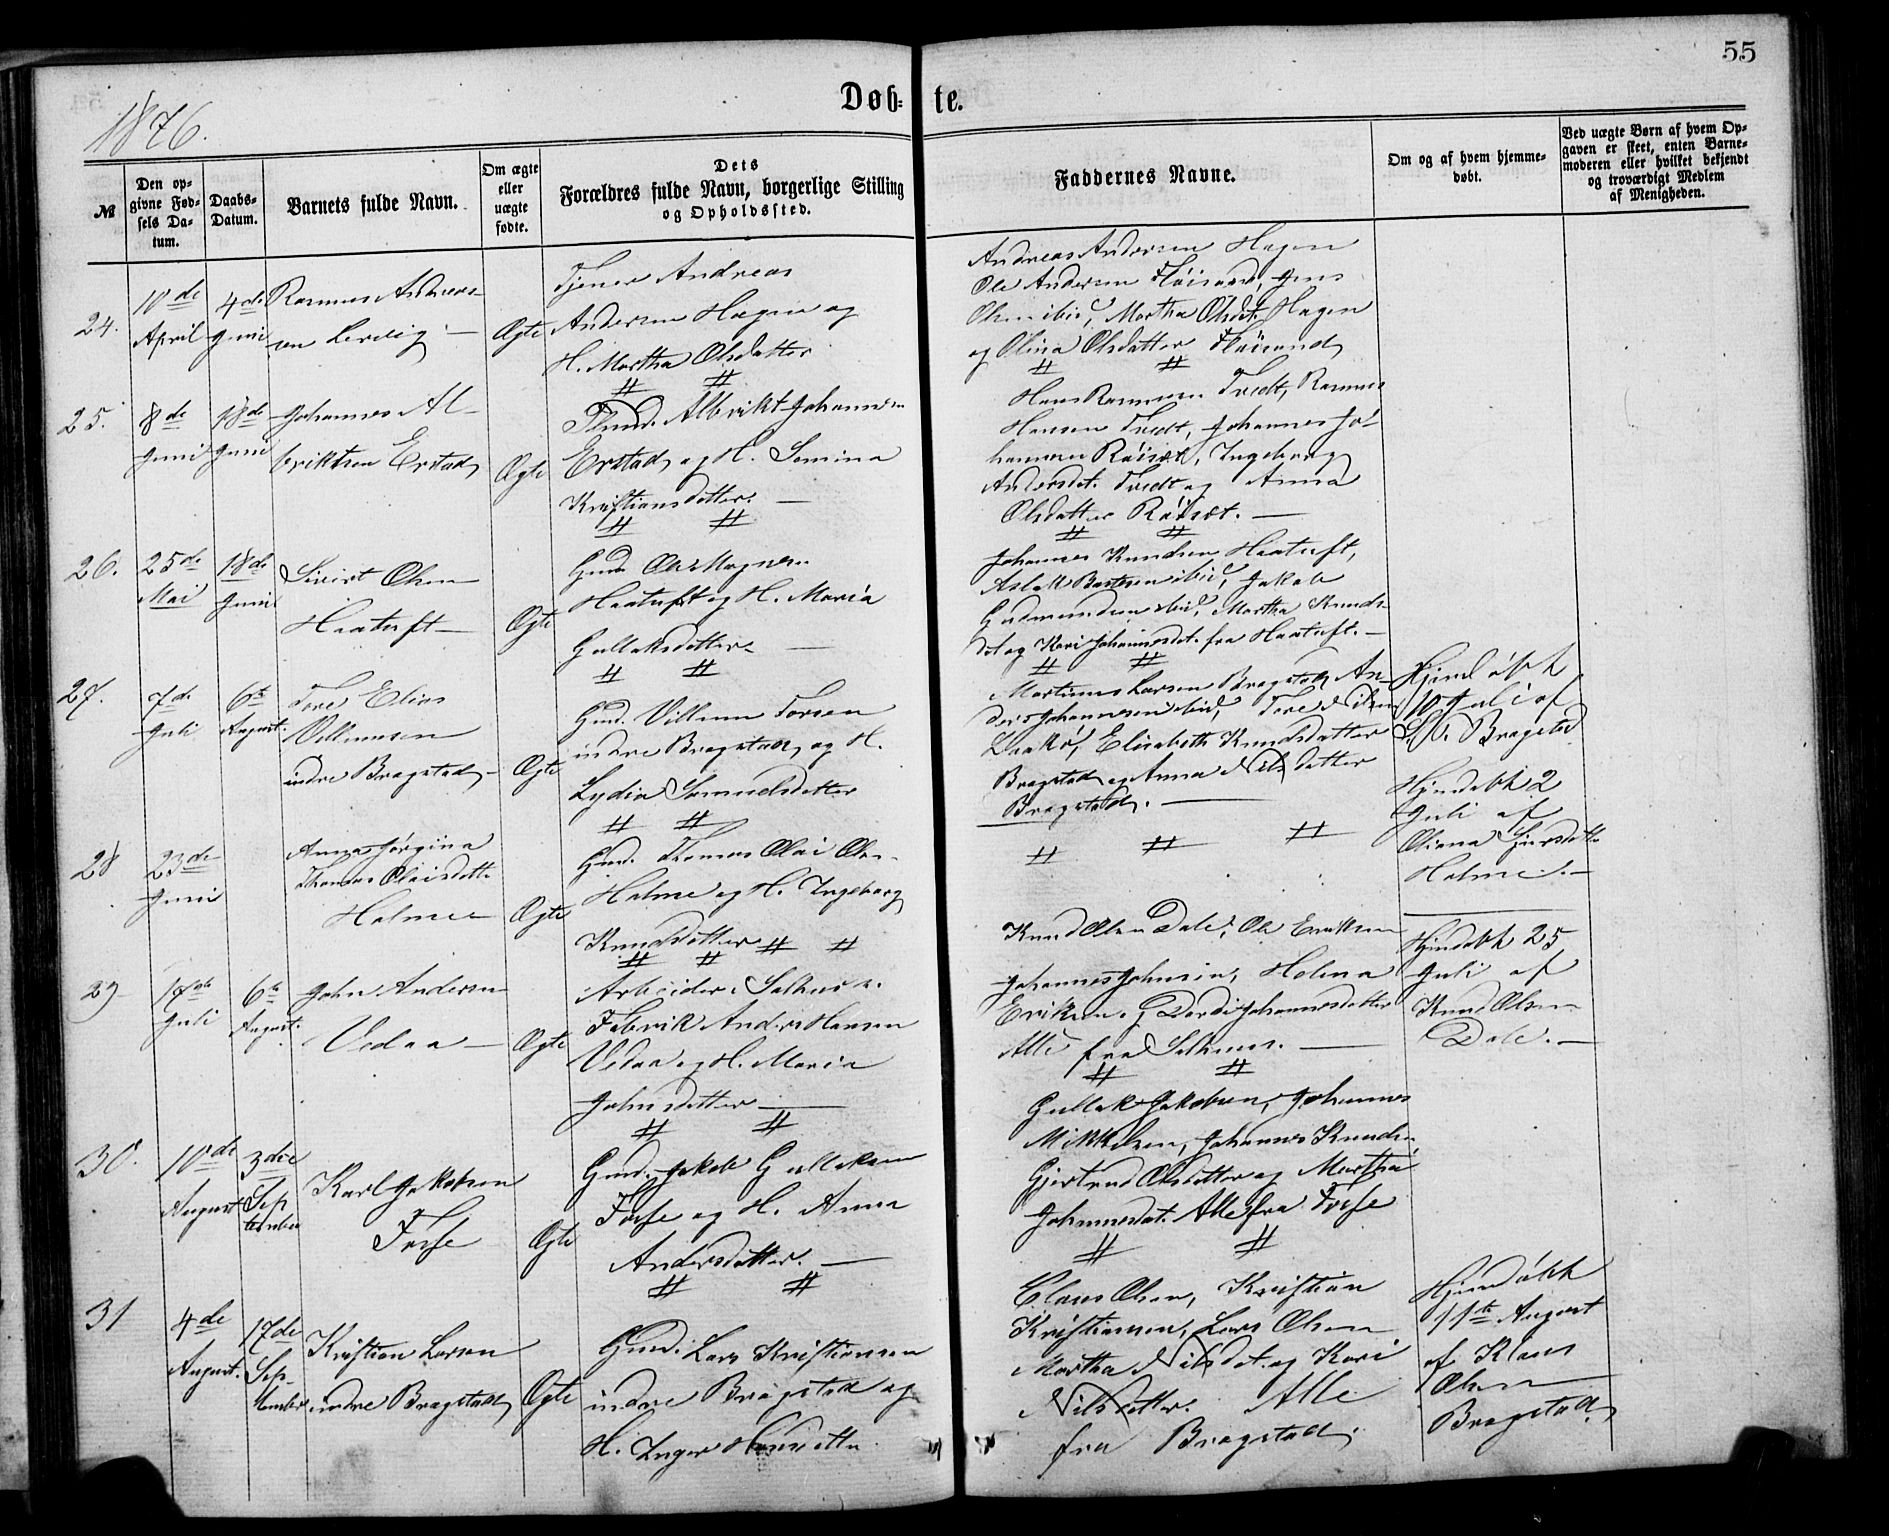 55
1876.
Døb-te.
№
Den op-
givne Fød-
sels Da-
tum.
Daabs-
Datum.
Barnets fulde Navn.
Om ægte
eller
uægte
fødte.
Dets
Forældres fulde Navn, borgerlige Stilling
og Opholdssted.
Faddernes Navne.
Om og af hvem hjemme-
døbt.
Ved uægte Børn af hvem Op-
gaven er skeet, enten Barne-
moderen eller hvilket bekjendt
og troværdigt Medlem
af Menigheden.
24.
10de
April
4de
Juni
Rasmus Andreas-
sen
Ægte
Tjener Andreas
Andersen Hagen og
H. Martha Olsdatter
Andreas Andersen Hagen
Ole Andersen Jens
Olsen ibid, Martha Olsdt. Hagen
og Olina Olsdatter
25.
8de
Juni
18de
Juni
Johannes Al-
briktsen Erstad
Ægte
Albrikt Johannesen
Erstad og H. Semina
Kristiansdatter. —
Hans Rasmusen Tvedt, Rasmus
Hansen Tvedt, Johannes Jo-
hannesen Røiset, Ingeborg
Andersdt. Tvedt og Anna
Olsdatter Røiset. —
26.
25de
Mai
18de
Juni
Sivert Olsen
Haatuft —
Ægte
Gmd. Ole Magnesen
Haatuft og H. Maria
Gullaksdatter. —
Johannes Knudsen Haatuft,
Aslak Bartesen ibid, Jakob
Gudmundsen ibid, Martha Knuds-
dt og Kari Johannesdt. fra Haatuft. —
27.
7de
Juli
6te
August.
Tore Elias
Villumsen
indre Bragstad —
Ægte
Gmd. Villum Torsen
indre Bragstad og H.
Lydia Samuelsdatter
Martinus Larsen Bragstad, An-
ders Johannesen ibid, Tore Nilsen
Elisabeth Knudsdatter
Bragstad og Anna Nilsdatter
Bragstad. —
Hjemdøbt
10 Juli af
Bragstad
28
23de
Juni
Anna Jørgina
Thomas Olaisdatt.
Holme —
Ægte
Gmd. Thomas Olai Olsen
Holme og H. Ingeborg
Knudsdatter
Hjemdøbt 2
Juli af
Oliana
Holme. —
29
18de
Juli
6te
August.
John Andersen
Vedaa —
Ægte
Arbeider i Salhus
Fabrik Anders Hansen
Vedaa og H. Maria
Johnsdatter —
Knud Olsen Dale, Ole Eriksen
Johannes Johnsen, Helena
Eriksen og Dordi Johannesdatter
Alle fra Salhus. —
Hjemdøbt 25
Juli af
Knud Olsen
Dale. —
30.
10de
August
3die
Sep-
tember
Karl Jakobsen
Fosse
Ægte
Gmd. Jakob Gullaksen
Fosse og H. Anna
Andersdatter. —
Gullak Jakobsen, Johannes
Mikkelsen, Johannes Knudsen
Gjertrud Olsdatter og Martha
Johannesdt. Alle fra Fosse
31
4de
August.
17de
Sep-
tember
Kristian Larsen
indre Bragstad
Ægte
Gmd. Lars Kristiansen
indre Bragstad og
H. Inger
Claus Olsen, Kristian
Kristiansen, Lars Olsen
Martha Nilsdt. og Kari
Nilsdatter. Alle
fra Bragstad.
Hjemdøbt
11te August
af Klaus
Olsen
Bragstad